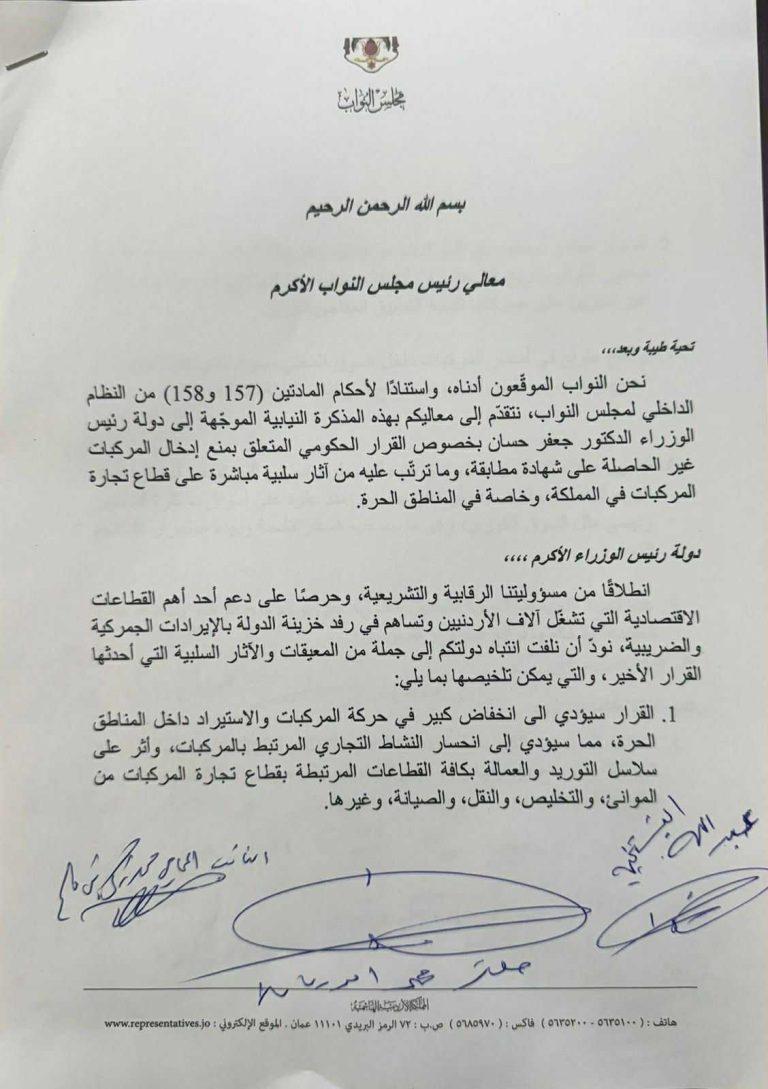 مجلس النواب
بسم الله الرحمن الرحيم
معالي رئيس مجلس النواب الأكرم
تحية طيبة وبعد،،،
نحن النواب الموقّعون أدناه، واستنادًا لأحكام المادتين (157 و158) من النظام
الداخلي لمجلس النواب، نتقدّم إلى معاليكم بهذه المذكرة النيابية الموجّهة إلى دولة رئيس
الوزراء الدكتور جعفر حسان بخصوص القرار الحكومي المتعلق بمنع إدخال المركبات
غير الحاصلة على شهادة مطابقة، وما ترتّب عليه من آثار سلبية مباشرة على قطاع تجارة
المركبات في المملكة، وخاصة في المناطق الحرة.
دولة رئيس الوزراء الأكرم ،،،،
انطلاقًا من مسؤوليتنا الرقابية والتشريعية، وحرصًا على دعم أحد أهم القطاعات
الاقتصادية التي تشغّل آلاف الأردنيين وتساهم في رفد خزينة الدولة بالإيرادات الجمركية
والضريبية، نودّ أن نلفت انتباه دولتكم إلى جملة من المعيقات والآثار السلبية التي أحدثها
القرار الأخير، والتي يمكن تلخيصها بما يلي:
1. القرار سيؤدي الى انخفاض كبير في حركة المركبات والاستيراد داخل المناطق
الحرة، مما سيؤدي إلى انحسار النشاط التجاري المرتبط بالمركبات، وأثر على
سلاسل التوريد والعمالة بكافة القطاعات المرتبطة بقطاع تجارة المركبات من
الموانئ، والتخليص، والنقل، والصيانة، وغيرها.
عبد الله
النائب المحامي محمد
المملكة الأردنية الهاشمية
هاتف : ( ٥٦٣٥١٠٠ - ٥٦٣٥٢٠٠ ) فاكس : ( ٥٦٨٥٩٧٠ ) ص.ب : ٧٢ الرمز البريدي ١١١٠١ عمان . الموقع الإلكتروني : www.representatives.jo